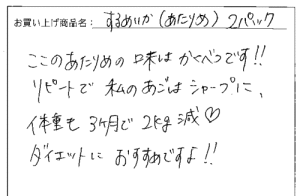 お買い上げ商品名: するめいか(あたりめ) 2パック
このあたりめの味はかくべつです!!
リピートで私のあごはシャープに、
体重も3ヶ月で2kg減♡
ダイエットにおすすめですよ!!